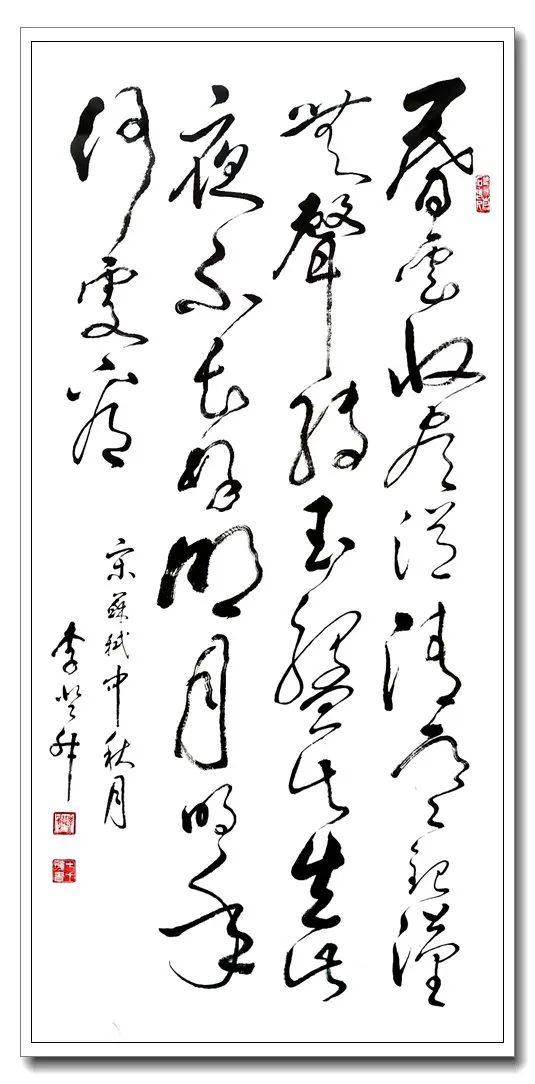 暮雲收盡溢清寒銀漢
無聲轉玉盤此生此
夜不長好明月明年
何處看
宋蘇軾中秋月
李登